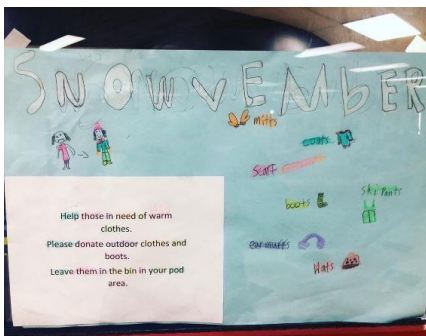 SNOWVEMBER
mitts
coats
Scarf
boots
ski Pants
ear muffs
Hats
Help those in need of warm
clothes.
Please donate outdoor clothes and
boots.
Leave them in the bin in your pod
area.